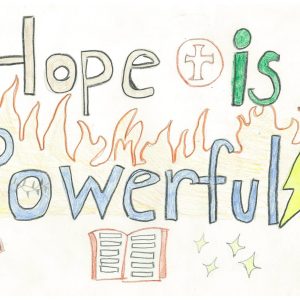 Hope is
Powerful